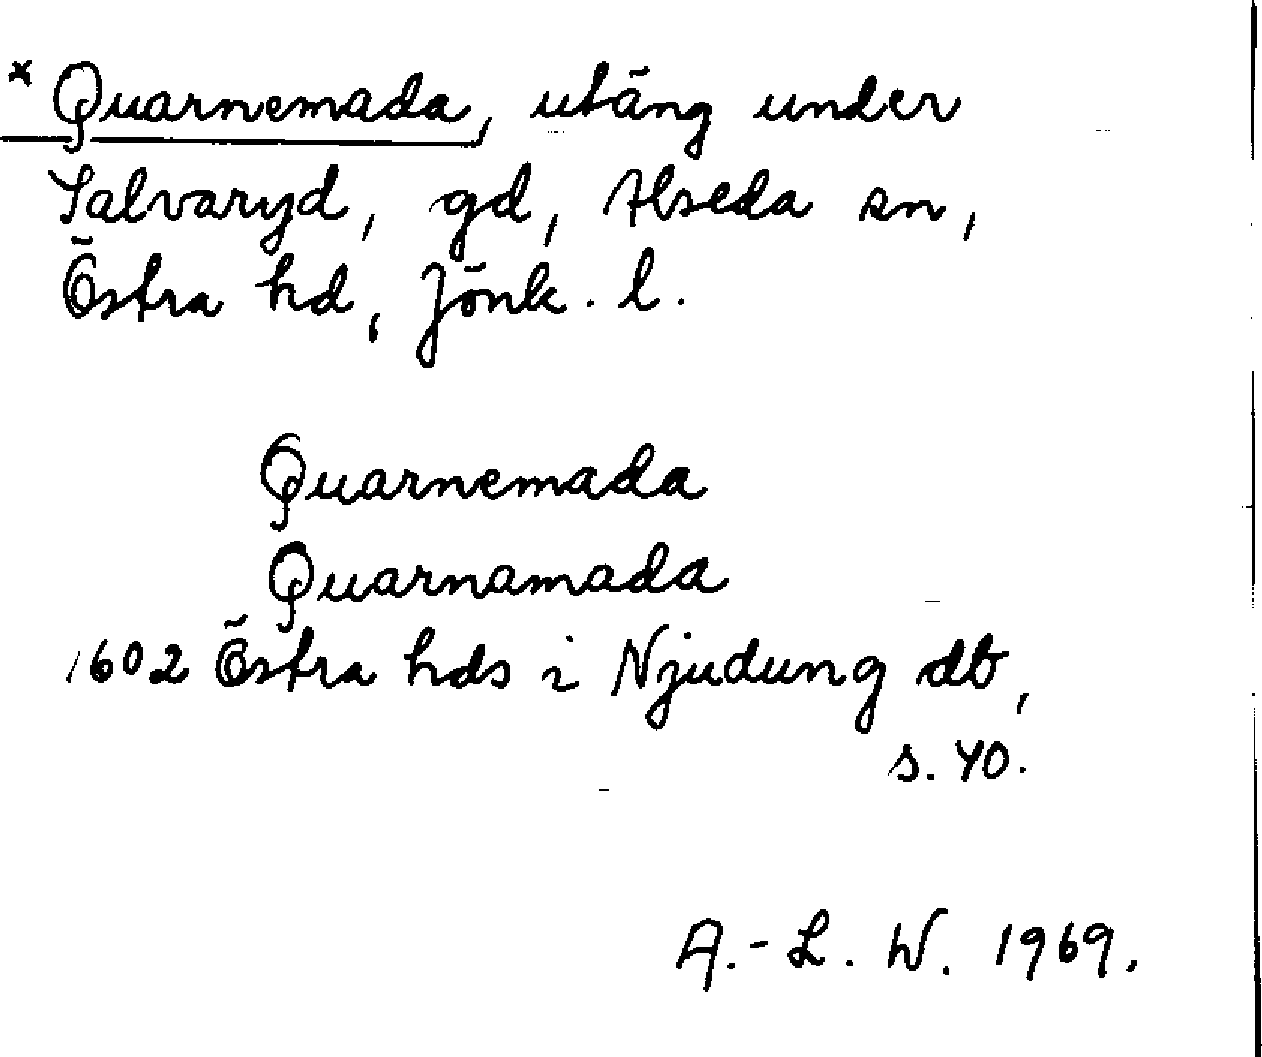 * Quarnemada, utäng under
Salvaryd, gd, Alseda sn,
Östra hd, Jönk. l.
Quarnemada
Quarnamada
1602 Östra hds i Njudung db,
s. 40.
A.-L. W. 1969.